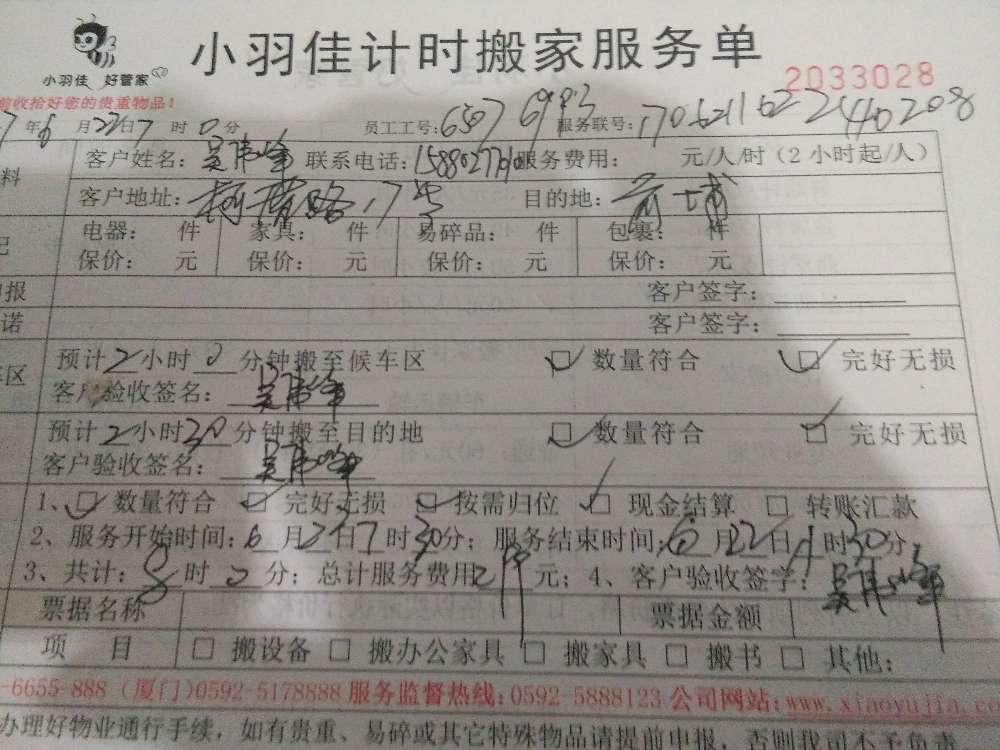 小羽佳计时搬家服务单
小羽佳 好管家
2033028
前收拾好您的贵重物品！
7年6月22日7时0分 员工工号： 服务联号：
料 客户姓名： 联系电话： 服务费用： 元/人/时（2小时起/人）
客户地址： 路17号 目的地：前埔
记 电器： 件 家具： 件 易碎品： 件 包裹： 件
保价： 元 保价： 元 保价： 元 保价： 元
申报 客户签字：
诺 客户签字：
车区 预计2小时0分钟搬至候车区 □数量符合 □完好无损
客户验收签名：
预计2小时30分钟搬至目的地 □数量符合 □完好无损
客户验收签名：
1、□数量符合 □完好无损 □按需归位 □现金结算 □转账汇款
2、服务开始时间：6月22日7时30分；服务结束时间：6月22日 时30分
3、共计：8时0分；总计服务费用 元；4、客户验收签字：
票据名称 票据金额
项 目 □搬设备 □搬办公家具 □搬家具 □搬书 □其他：
-6655-888（厦门）0592-5178888 服务监督热线：0592-5888123 公司网站：www.xiaoyujia.co
办理好物业通行手续，如有贵重、易碎或其它特殊物品请提前申报，否则我司不予负责